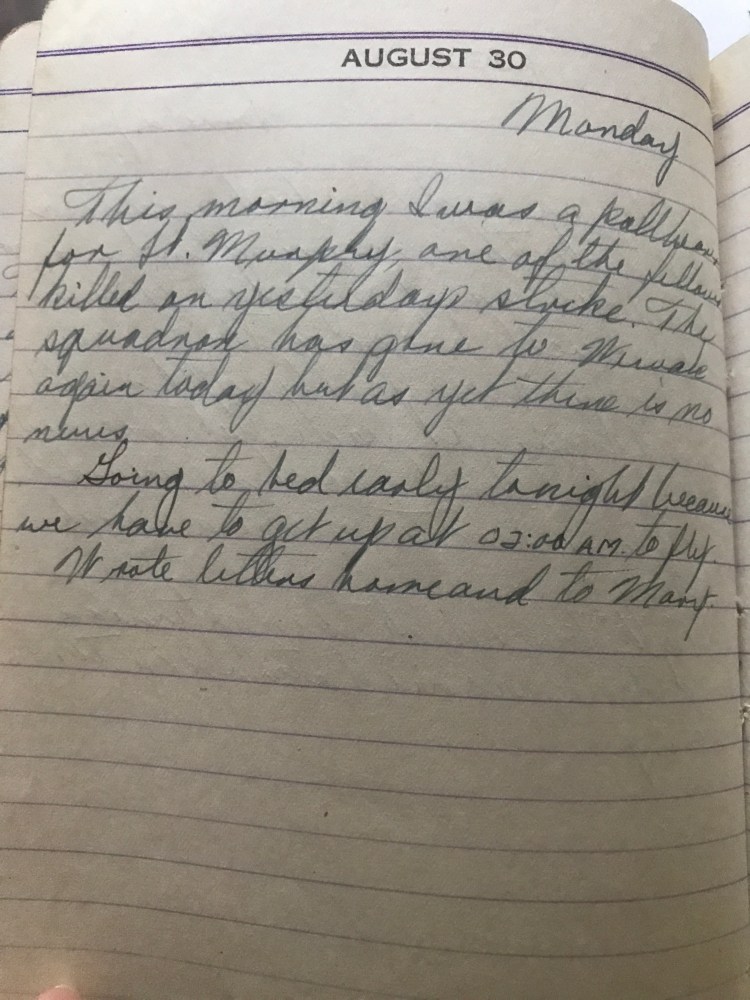 AUGUST 30
Monday
This morning I was a pallbearer
for Lt. Murphy, one of the fellows
killed on yesterdays strike. The
squadron has gone to Wewak
again today but as yet there is no
news.
Going to bed early tonight because
we have to get up at 02:00 AM. to fly.
Wrote letters home and to Mary.